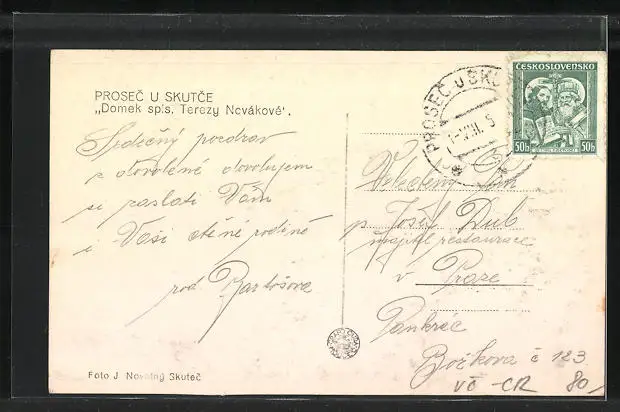 PROSEČ U SKUTČE
„Domek spis. Terezy Novákové“.
Srdečný pozdrav
z dovolené dovolujem
si zaslati Vám
i Vaší ctěné rodině
rod Bartošova
Foto J. Novotný Skuteč
PROSEČ U SKU
ČESKOSLOVENSKO
50h 50h
Velectěný Pan
p. Josef Dub
majitel restaurace
v Praze
Pankrác
Bočkova č 123
VČ-CR 80,-